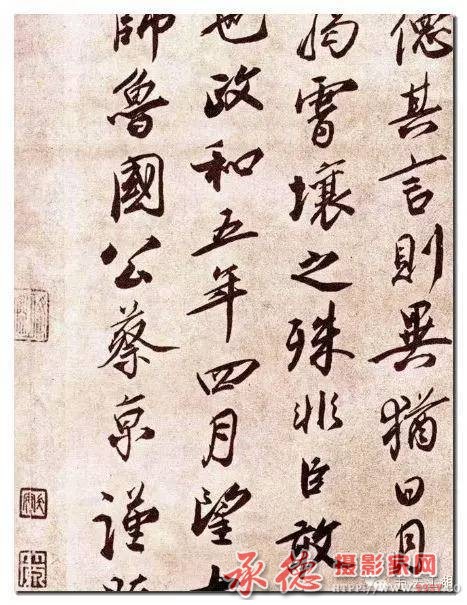 其言則異猶日月
霄壤之殊非臣敢
也政和五年四月望
師魯國公蔡京謹
承德摄影家网